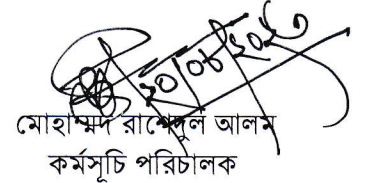 ২০/০৮/২০২৩
মোহাম্মদ রাশেদুল আলম
কর্মসূচি পরিচালক